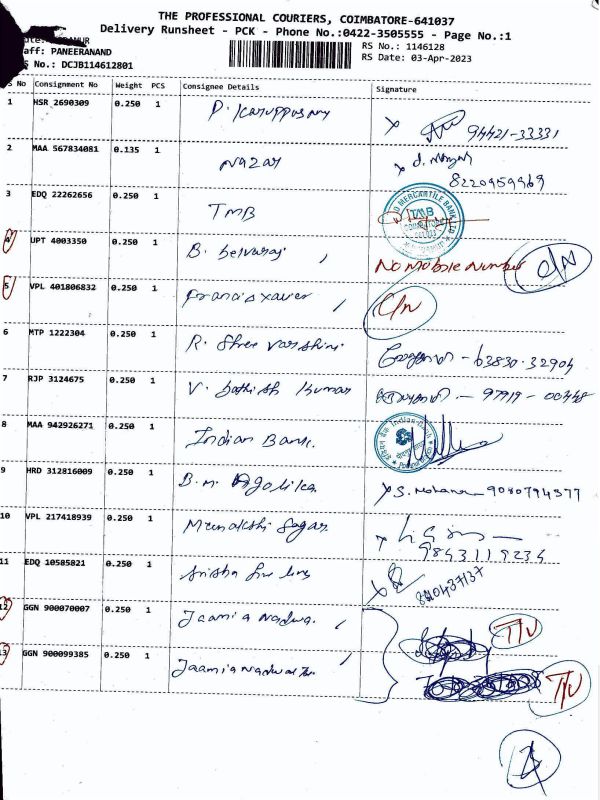 THE PROFESSIONAL COURIERS, COIMBATORE-641037
Delivery Runsheet - PCK - Phone No.:0422-3505555 - Page No.:1
RS No.: 1146128
aff: PANEERANAND
RS Date: 03-Apr-2023
S No.: DCJB114612801
S No Consignment No Weight PCS Consignee Details Signature
1 HSR 2690309 0.250 1 P. Karuppusamy 94421-33331
2 MAA 567834081 0.135 1 Nazar 8220959969
3 EDQ 22262656 0.250 1 TMB TMB
4 UPT 4003350 0.250 1 B. Selvaraj No Mobile Number C/N
5 VPL 401806832 0.250 1 Francis xavier C/N
6 MTP 1222304 0.250 1 R. Shree Varshini 63830-32904
7 RJP 3124675 0.250 1 V. Sathish Kumar
8 MAA 942926271 0.250 1 Indian Bank. Indian Bank
9 HRD 312816009 0.250 1 B.M. S. Mohana - 9080794577
10 VPL 217418939 0.250 1 Meenakshi Sagar 9843119234
11 EDQ 10585821 0.250 1
12 GGN 900070007 0.250 1 Jaamia Nadwa. T/V
13 GGN 900099385 0.250 1 T/V